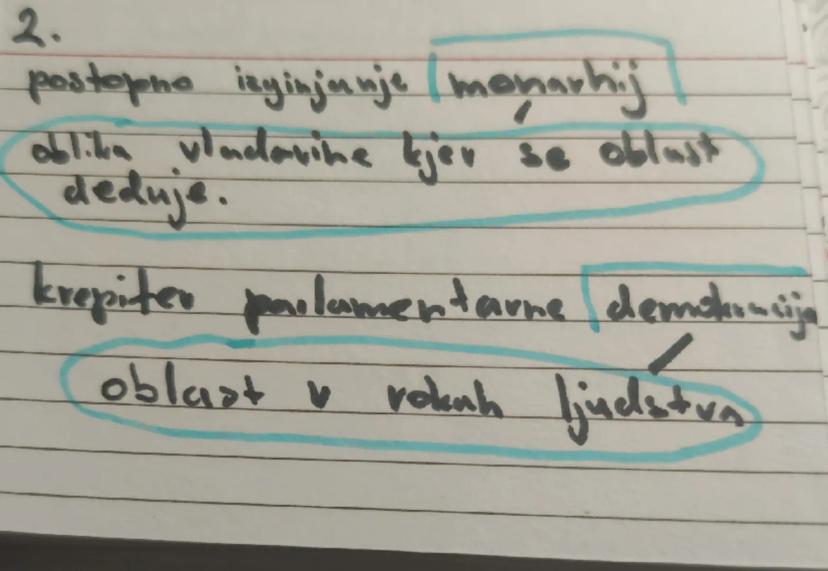 2.
postopno izginjanje monarhij
oblika vladavine kjer se oblast
deduje.
krepitev parlamentarne demokracija
oblast v rokah ljudstva